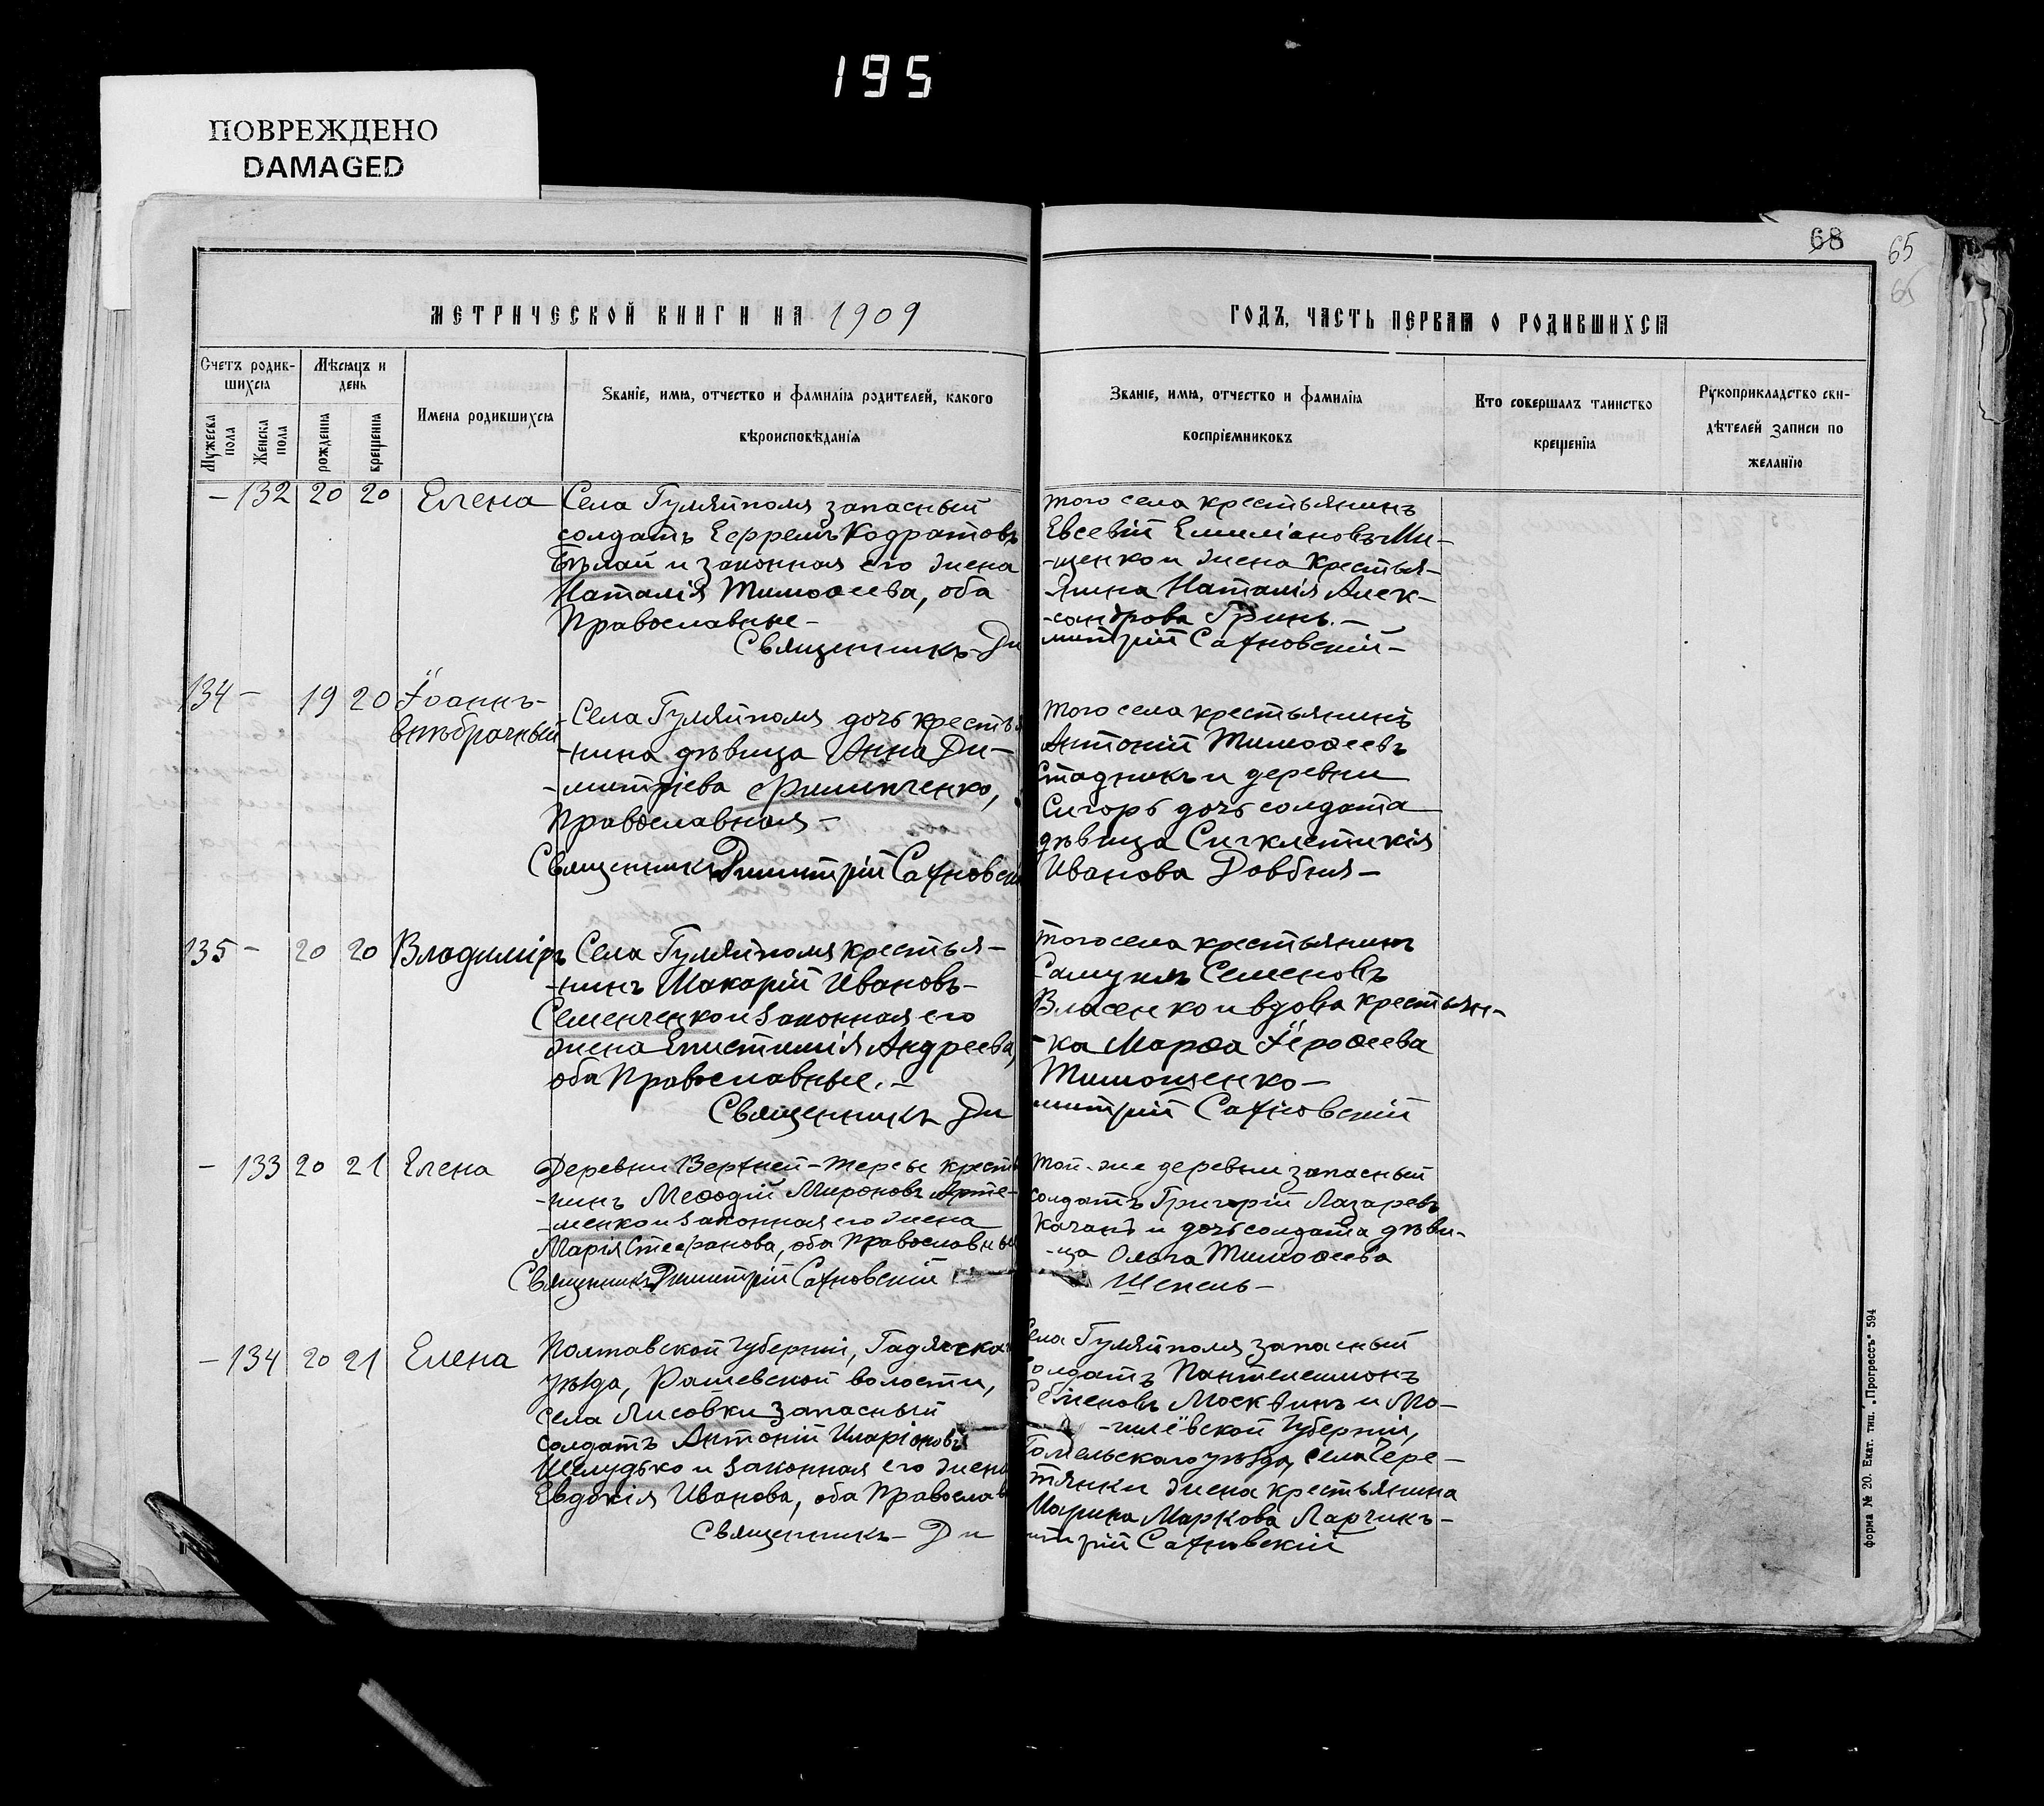 195
ПОВРЕЖДЕНО
DAMAGED
68
65
65
МЕТРИЧЕСКОЙ КНИГИ НА 1909
ГОДЪ, ЧАСТЬ ПЕРВАЯ О РОДИВШИХСЯ
Счетъ родив-
шихся
Мужеска
пола
Женска
пола
Мѣсяцъ и
день
рожденія
крещенія
Имена родившихся
Званіе, имя, отчество и фамилія родителей, какого
вѣроисповѣданія
Званіе, имя, отчество и фамилія
воспріемниковъ
Кто совершалъ таинство
крещенія
Рукоприкладство сви-
дѣтелей записи по
желанію
– 132 20 20 Елена
Села Гуляйполя запасный
солдатъ Ефремъ Кодратовъ
Бѣлай и законная его жена
Наталія Тимоѳеева, оба
Православные –
Священникъ Ди
того села крестьянинъ
Евсевій Емиліановъ Ми-
-щенко и жена крестья-
-янина Наталія Алек-
-сандрова Гринь. –
митрій Сахновскій –
134 – 19 20 Іоаннъ-
внѣбрачный
Села Гуляйполя дочь крестья
-нина дѣвица Анна Ди-
-митріева Филипченко,
Православная –
Священникъ Димитрій Сахновскі
того села крестьянинъ
Антоній Тимоѳеевъ
Стадникъ и деревни
Сигоръ дочь солдата
дѣвица Сигклетикія
Иванова Довбня –
135 – 20 20 Владиміръ
Села Гуляйполя крестья-
-нинъ Макарій Ивановъ-
Семенченко и законная его
жена Епистимія Андреева,
оба Православные. –
Священникъ Ди
того села крестьянинъ
Самуилъ Семеновъ
Власенко и вдова крестьян-
-ка Марѳа Іероѳеева
Тимошенко –
митрій Сахновскій
– 133 20 21 Елена
Деревни Верхней-Терсы крестья
-нинъ Меѳодій Мироновъ Арте-
-менко и законная его жена
Марія Стефанова, оба Православные
Священникъ Димитрій Сахновскій
той-же деревни запасный
солдатъ Григорій Лазаревъ
Качанъ и дочь солдата дѣви-
-ца Ольга Тимоѳеева
Шепель –
– 134 20 21 Елена
Полтавской губерніи, Гадячска
уѣзда, Рашевской волости,
села Лисовки запасный
солдатъ Антоній Иларіоновъ
Шелудько и законная его жена
Евдокія Иванова, оба Православ
Священникъ – Ди
Села Гуляйполя запасный
солдатъ Пантелеимонъ
Семеновъ Москвинъ и Мо-
-гилёвской губерніи,
Гомельскаго уѣзда, села Чере-
тянки жена крестьянина
Марина Маркова Ларчикъ –
митрій Сахновскій
форма № 20. Екат. тип. „Прогрессъ" 594